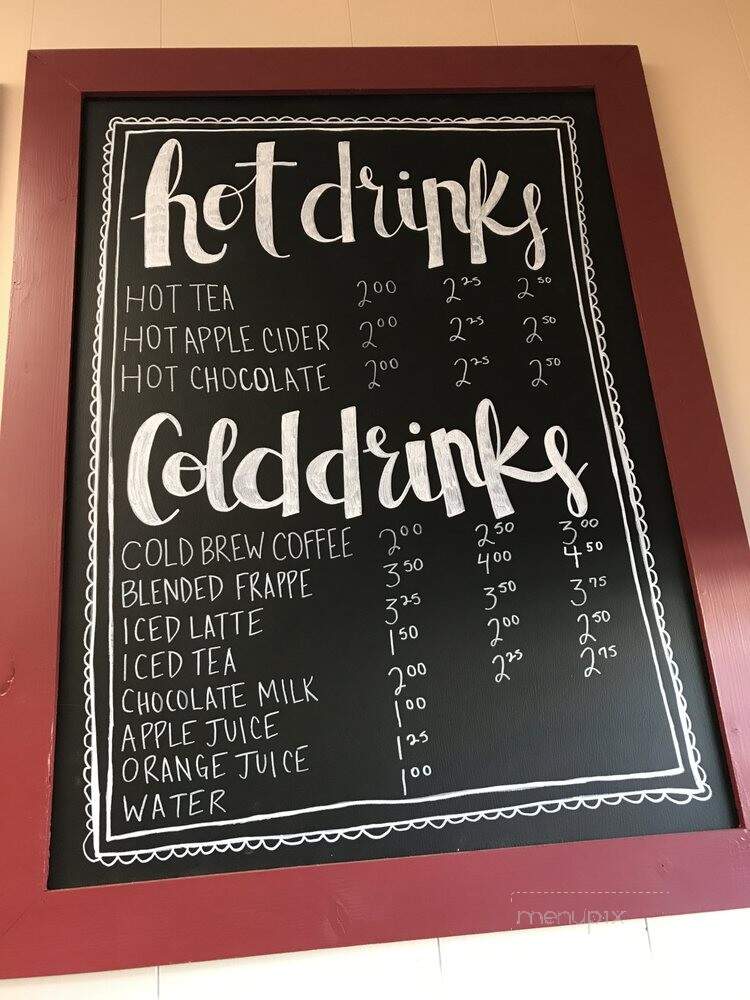 hot drinks
HOT TEA 2.00 2.25 2.50
HOT APPLE CIDER 2.00 2.25 2.50
HOT CHOCOLATE 2.00 2.25 2.50
Cold drinks
COLD BREW COFFEE 2.00 2.50 3.00
BLENDED FRAPPE 3.50 4.00 4.50
ICED LATTE 3.25 3.50 3.75
ICED TEA 1.50 2.00 2.50
CHOCOLATE MILK 2.00 2.25 2.75
APPLE JUICE 1.00
ORANGE JUICE 1.25
WATER 1.00
menupix